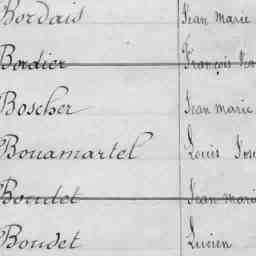 Bordais Jean Marie
Bordier François
Boscher Jean marie
Bouamartel Louis
Boudet Jean marie
Boudet Lucien